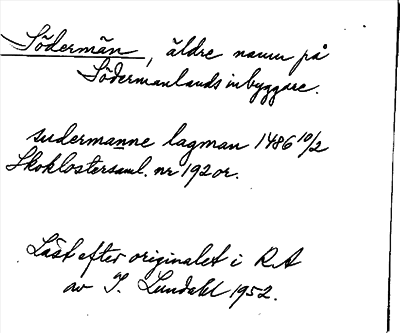 Södermän, äldre namn på
Södermanlands inbyggare.
sudermanne lagman 1486 10/2
Skoklostersaml. nr 192 or.
Läst efter originalet i RA
av I. Lundahl 1952.